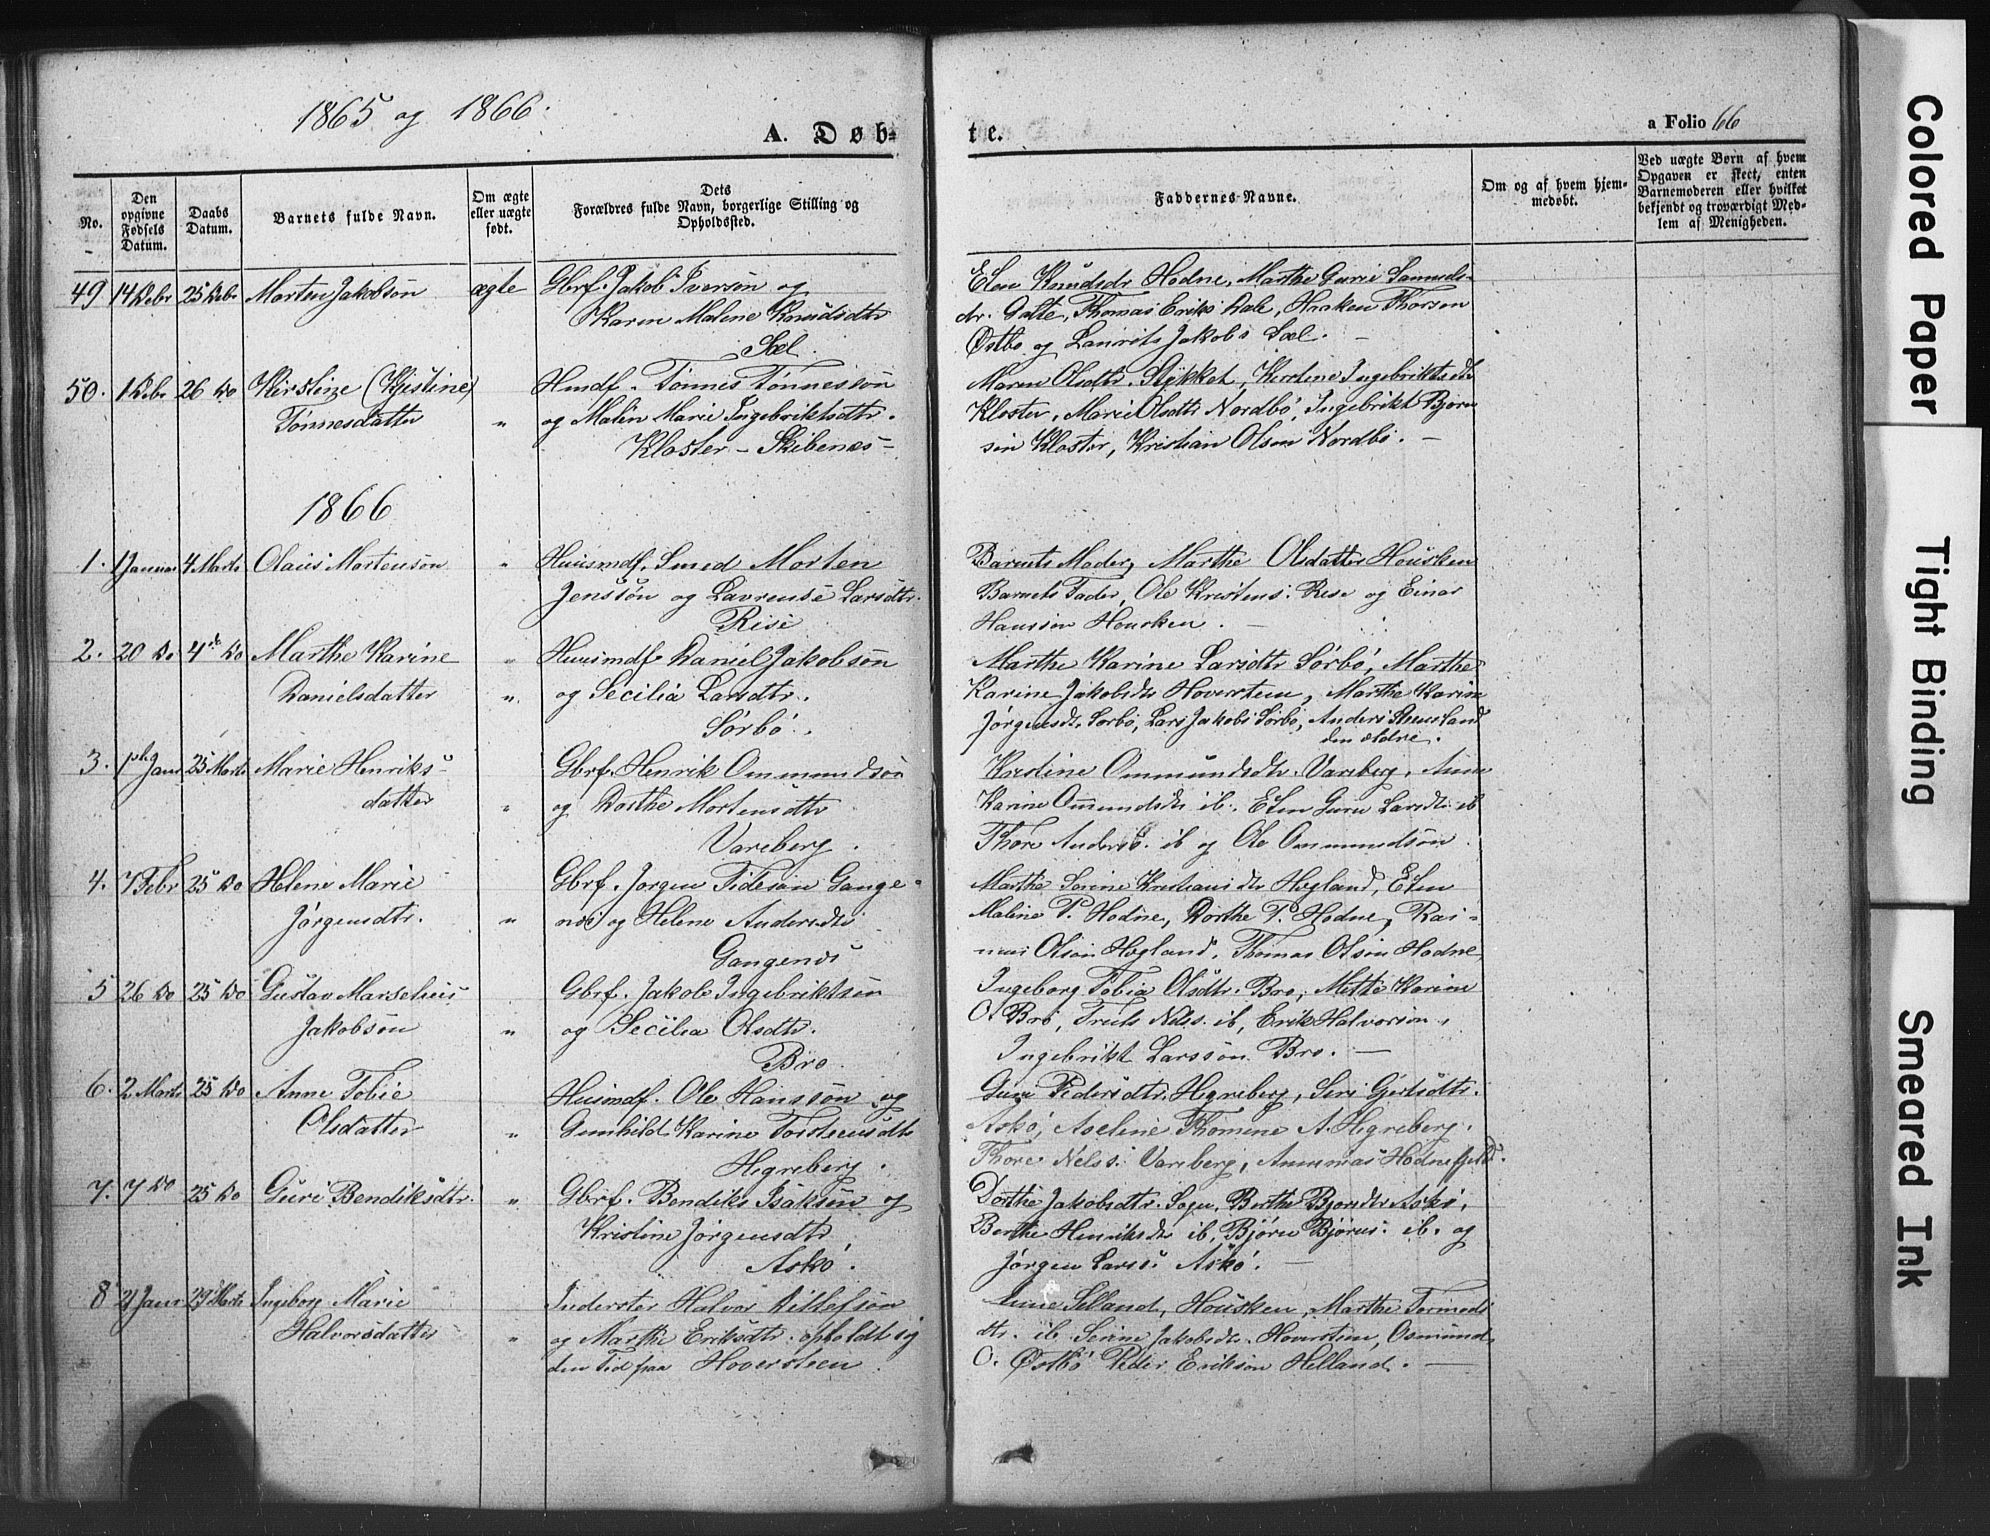 1865 og 1866.
A. Døb-
te.
a Folio 66
No.
Den opgivne Fødsels Datum.
Daabs Datum.
Barnets fulde Navn.
Om ægte eller uægte født.
Dets Forældres fulde Navn, borgerlige Stilling og Opholdssted.
Faddernes Navne.
Om og af hvem hjemmedøbt.
Ved uægte Børn af hvem Opgaven er skeet, enten Barnemoderen eller hvilket bekjendt og troværdigt Medlem af Menigheden.
49 14 Debr 25 Debr Morten Jakobsøn ægte Gbrf. Jakob Iversøn og
Karen Malene Knudsdtr
Sæl.
Elen Knudsdr Hodne, Marthe Gurie Samuels-
dtr. Galte, Thomas Eriks Dale, Haaken Thorsen
Østbø og Laurits Jakobs Sæl.
50. 1 Debr 26 Do Kirstine (Kjistine)
Tønnesdatter "
Husmdf. Tønnes Tønnessøn
og Malen Marie Ingebriktsdtr.
Kloster - Skibenæs-
Maren Olsdtr. Stykket, Kirstine Ingebriktsdtr
Kloster, Marie Olsdtr Nordbø, Ingebrikt Bjørn
sen Kloster, Kristian Olsen Nordbø.
1866
1. 1 Januar 4 Marts Olaus Mortensøn "
Huusmdf. Smed Morten
Jenssøn og Lavrense Larsdtr.
Rise
Barnets Moder, Marthe Olsdatter Housken
Barnets Fader, Ole Kristens. Rise og Einar
Hanssøn Housken.
2. 20 Do 4de Do Marthe Karine "
Danielsdatter "
Huusmdf Daniel Jakobsøn
og Secilia Larsdtr.
Sørbø.
Marthe Karine Larsdtr Sørbø, Marthe
Karine Jakobsdtr Hoversteen, Marthe Karin
Jørgensdtr Sørbø, Lars Jakobs Sørbø, Anders
den ældre.
3. 1ste Janr 25 Marts Marie Henriks-
datter "
Gbrf. Henrik Ommundsøn
og Dorthe Mortensdtr
Vareberg.
Kristine Ommundsdtr. Vareberg, Anne
Karine Ommundsdtr ib. Elen Guru Larsdtr ib
Thore Anders. ib og Ole Ommundsøn
4. 7 Febr 25 Do Helene Marie
Jørgensdtr. "
Gbrf. Jørgen Gange-
næs og Helene Andersdtr
Gangenæs
Marthe Serine Kristiansdtr Høgland, Elen
Malene P. Hodne, Dorthe P. Hodne, Ras-
mus Olsøn Høgland, Thomas Olsøn Hodne
5 26 Do 25 Do Gustav Marselius
Jakobsøn "
Gbrf. Jakob Ingebriktsen
og Secilia Olsdtr.
Bro
Ingeborg Tobia Olsdtr. Bro, Mette Karine
O. Bro, Truls Nels. ib, Erik Halvorsøn,
Ingebrikt Larssøn Bro.
6. 2 Marts 25 Do Anne Tobie
Olsdatter "
Husmdf. Ole Hanssøn og
Gunhild Karine Torsteensdtr
Hegreberg.
Guri Pedersdtr. Hegreberg, Siri Gjertsdtr.
Askø, Aseline Thomine A. Hegreberg.
Thore Nelss. Vareberg, Hodnefjeld.
7. 7 Do 25 Do Guri Bendiksdtr. "
Gbrf. Bendiks Isaksøn og
Kristine Jørgensdtr
Askø.
Dorthe Jakobsdtr. Sogn, Berthe Bjørnsdtr Askø,
Berthe Henriksdtr ib, Bjørn Bjørns. ib. og
Jørgen Larss. Askø.
8 21 Janr 29 Marts Ingeborg Marie
Halvorsdatter "
Inderster Halvor Ditlefsøn
og Marthe Eriksdtr. opholdt sig
den Tid paa Hoversteen.
Anne Selland, Housken, Marthe Tormods
dtr. ib Serine Jakobsdtr. Hoversteen, Osmund
O. Østbø Peder Eriksøn Helland.
Colored Paper
Tight Binding
Smeared Ink